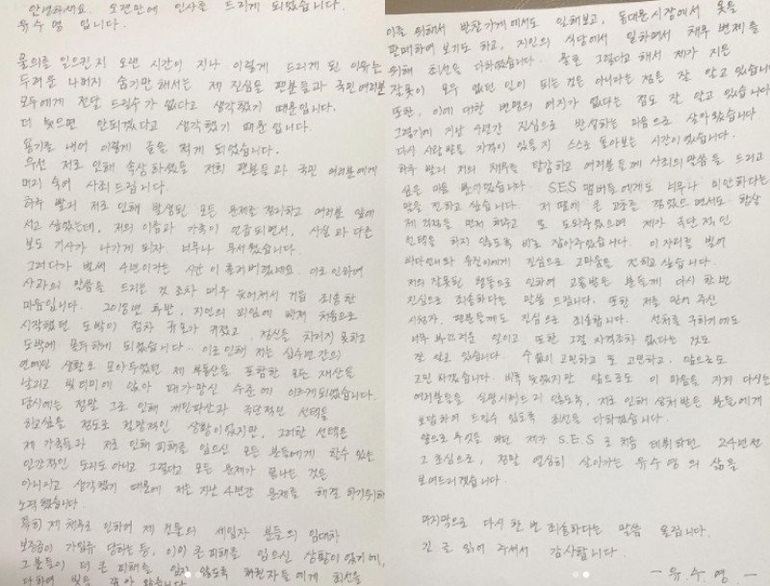 안녕하세요. 오랜만에 인사를 드리게 되었습니다.
유수영 입니다.
물의를 일으킨지 오랜 시간이 지나 이렇게 드리게 된 이유는
두려운 나머지 숨기만 해서는 제 진심을 팬분들과 국민 여러분
모두에게 전달 드릴수가 없다고 생각했기 때문입니다.
더 늦으면 안되겠다고 생각했기 때문입니다.
용기를 내어 이렇게 글을 적게 되었습니다.
우선 저로 인해 속상하셨을 저희 팬분들과 국민 여러분에게
머리 숙여 사죄드립니다.
하루 빨리 저로 인해 발생된 모든 문제를 정리하고 여러분 앞에
서고 싶었는데, 저의 이름과 가족이 언급되면서, 사실과 다른
보도 기사가 나가게 되자 너무나 무서웠습니다.
그러다가 벌써 4년이라는 시간이 흘러버렸네요. 이로 인하여
사과의 말씀을 드리는 것 조차 매우 늦어져서 거듭 죄송한
마음입니다. 2018년 후반, 지인의 꾀임에 빠져 처음으로
시작했던 도박이 점차 규모가 커졌고, 정신을 차리지 못하고
도박에 몰두하게 되었습니다.. 이로 인해 저는 십수년간의
연예인 생활로 모아두었던 제 부동산을 포함한 모든 재산을
날리고 빚더미에 앉아 패가망신 수준에 이르게되었습니다.
당시에는 정말 그로 인해 개인파산과 극단적인 선택을
하고싶을 정도로 절망적인 상황이었지만, 그러한 선택은
제 가족들과 저로 인해 피해를 입으신 모든 분들에게 할수 있는
인간적인 도리도 아니고 그렇다고 모든 문제가 끝나는 것은
아니라고 생각했기 때문에 저는 지난 4년간 문제를 해결 하기위하
노력했습니다.
특히 제 채무로 인하여 제 건물의 세입자 분들의 임대차
보증금이 가압류 당하는 등, 이미 큰 피해를 입으신 상황이었기에,
그분들이 더 큰 피해를 입지 않도록 채권자들에게 최선을
다하여 빚을 갚아 왔습니다.
이를 위해서 반찬가게에서도 일해보고, 동대문시장에서 옷을
판매하여 보기도 하고, 지인의 식당에서 일하면서 채무 변제를
위해 최선을 다하였습니다. 물론 그렇다고 해서 제가 지은
잘못이 모두 없던 일이 되는 것은 아니라는 점은 잘 알고 있습니
또한, 이에 대한 변명의 여지가 없다는 점도 잘 알고 있습니다
그렇기에 지난 4년간 진심으로 반성하는 마음으로 살아왔습니다
다시 사랑받을 자격이 있을지 스스로 돌아보는 시간이었습니다.
하루 빨리 저의 채무를 탕감하고 여러분들께 사죄의 말씀을 드리고
싶은 마음 뿐이었습니다. SES 멤버들에게도 너무나 미안하다는
말을 전하고 싶습니다. 저 때문에 큰 고초를 겪었으면서도 항상
제 걱정을 먼저 해주고 또 도와주었으며 제가 극단적인
선택을 하지 않도록 바로 잡아주었습니다. 이 자리를 빌어
바다언니와 유진이에게 진심으로 고마움을 전하고 싶습니다.
저의 잘못된 행동으로 인하여 고통받은 분들께 다시 한번
진심으로 죄송하다는 말씀 드립니다. 또한 저를 믿어 주신
시청자, 팬분들께도 진심으로 죄송합니다. 선처를 구하기에도
너무 부끄러운 일이고 또한 그럴 자격조차 없다는 것도
잘 알고 있습니다. 수없이 고민하고 또 고민하고, 앞으로도
고민 하겠습니다. 비록 늦었지만 앞으로도 이 마음을 지켜 다시는
여러분들을 실망시켜드리지 않도록, 저로 인해 상처받은 분들에게
보답하여 드릴수 있도록 최선을 다하겠습니다.
앞으로 무엇을 하던 제가 S.E.S로 처음 데뷔하던 24년전
그 초심으로, 정말 열심히 살아가는 유수영의 삶을
보여드리겠습니다.
마지막으로 다시 한 번 죄송하다는 말씀 올립니다.
긴 글 읽어 주셔서 감사합니다.
- 유.수.영 -